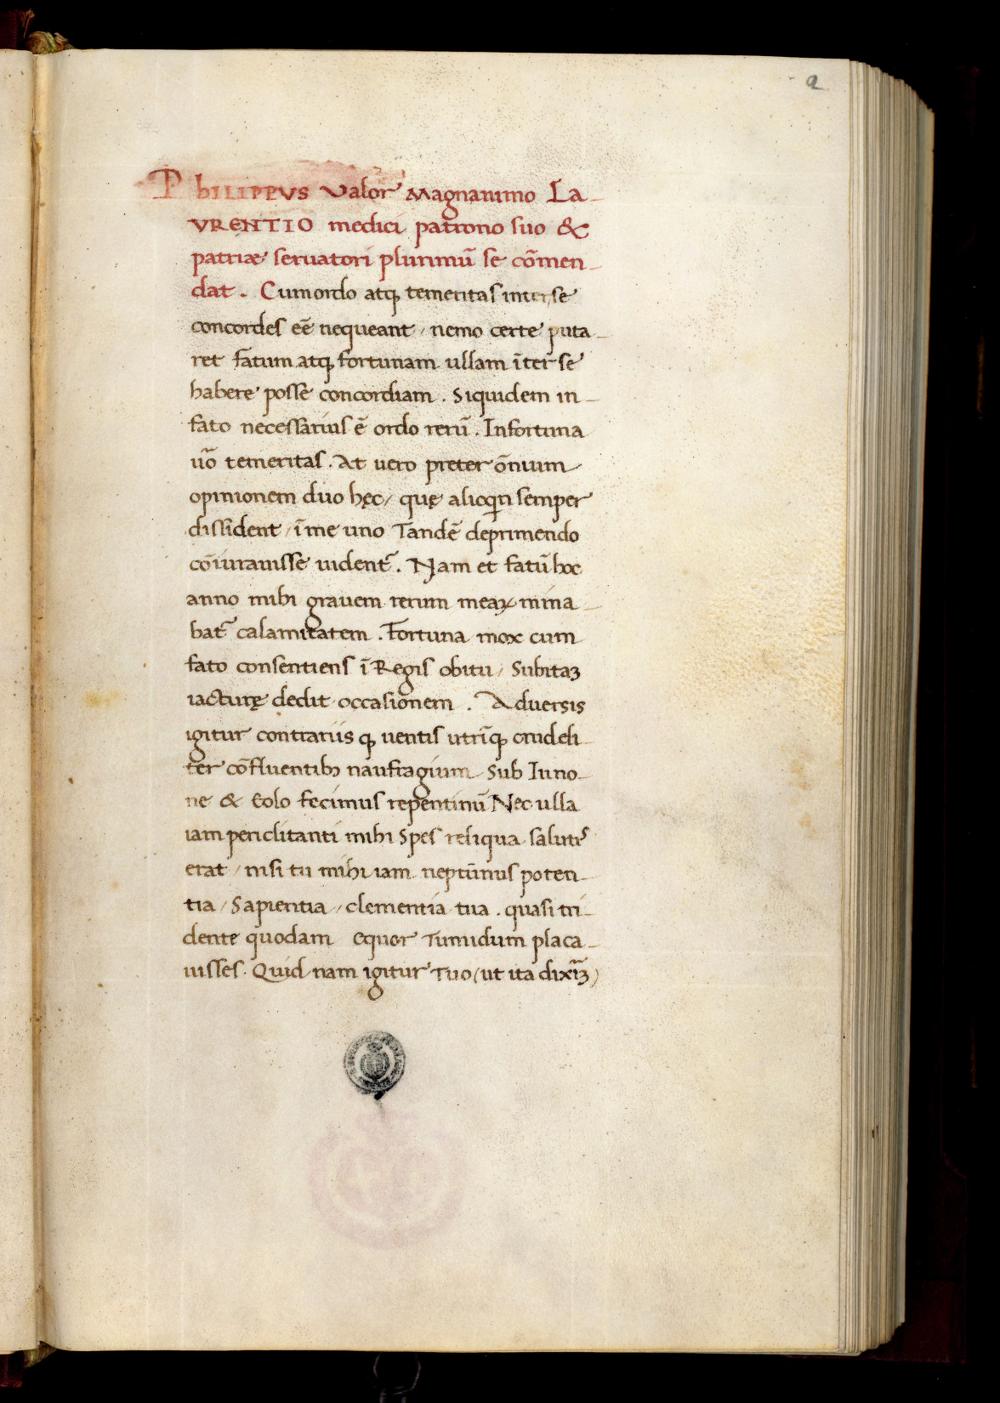 a
PhILIPPVS Valor Magnanimo La
VRENTIO medici patrono suo &
patriae seruatori plurimū se cōmen
dat. Cum ordo atq temeritas inter se
concordes eē nequeant / nemo certe puta
ret fatum atq fortunam ullam īter se
habere posse concordiam. Siquidem in
fato necessarius ē ordo rerū. In fortuna
uō temeritas. At uero preter ōnium
opinionem duo hęc / quę alioqn semper
dissident / ī me uno Tandē deprimendo
cōiurauisse uident᷑. Nam et fatū hoc
anno mihi grauem rerum meaꝝ mina
bat᷑ calamitatem. Fortuna mox cum
fato consentiens ī Regis obitu / Subitaꝫ
iacturę dedit occasionem. Aduersis
igitur contrariis q uentis utrīq crudeli
ter cōfluentibꝫ naufragium Sub Iuno
ne & Eolo fecimus repentinū Nec ulla
iam periclitanti mihi Spes reliqua salutis
erat / nisi tu mihi iam neptūnus poten
tia / Sapientia / clementia tua. quasi tri
dente quodam equor Tumidum placa
uisses. Quid nam igitur Tuo (ut ita dixerī)